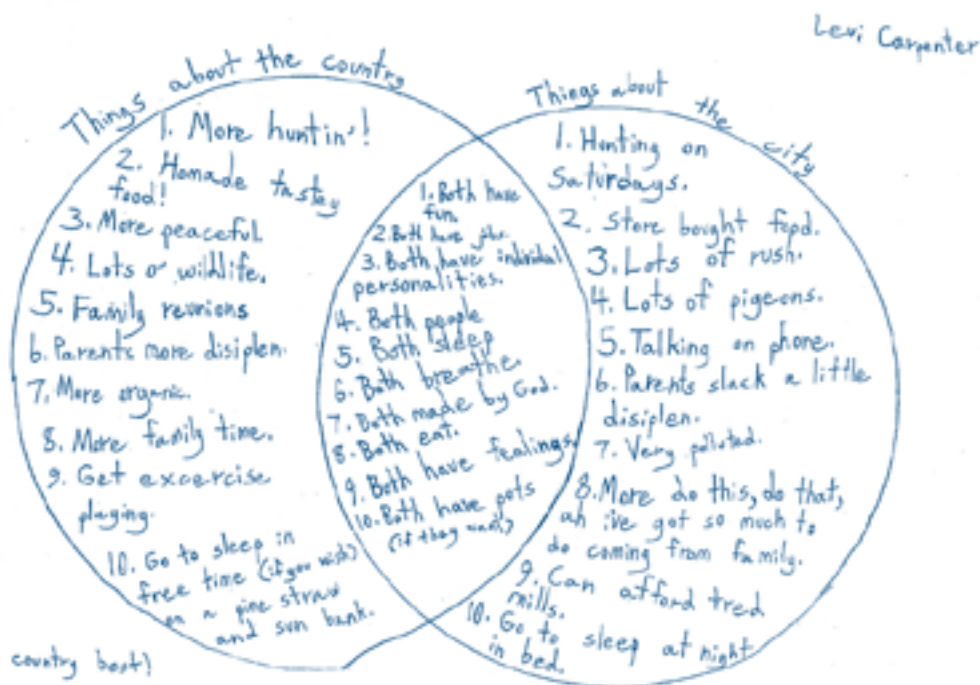 Levi Carpenter
Things about the country
1. More huntin'!
2. Homade tastey
food!
3. More peaceful.
4. Lots o' wildlife.
5. Family reunions
6. Parents more disiplen.
7. More organic.
8. More family time.
9. Get excercise
playing.
10. Go to sleep in
free time (if you wish)
on a pine straw
and sun bank.
1. Both have
fun.
2. Both have jobs.
3. Both have individual
personalities.
4. Both people
5. Both sleep
6. Both breathe.
7. Both made by God.
8. Both eat.
9. Both have feelings.
10. Both have pets
(if they want)
Things about the city
1. Hunting on
Saturdays.
2. Store bought food.
3. Lots of rush.
4. Lots of pigeons.
5. Talking on phone.
6. Parents slack a little
disiplen.
7. Very polluted.
8. More do this, do that,
ah i've got so much to
do coming from family.
9. Can afford tred
mills.
10. Go to sleep at night
in bed.
country